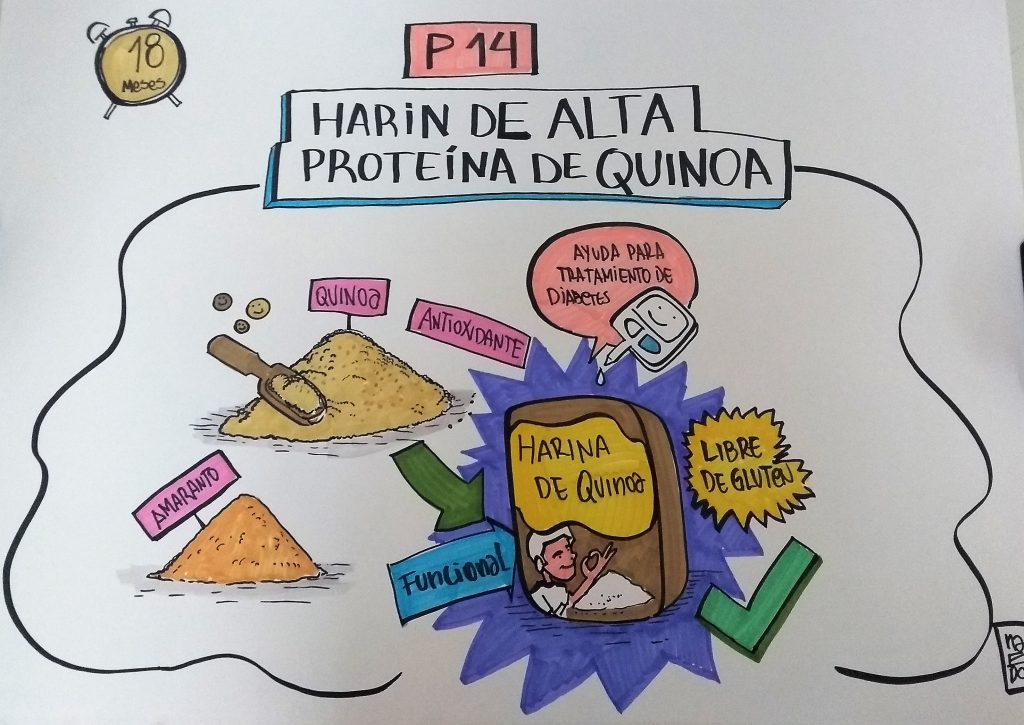 18
Meses
P 14
HARIN DE ALTA
PROTEÍNA DE QUINOA
AYUDA PARA
TRATAMIENTO DE
DIABETES
QUINOA
ANTIOXIDANTE
HARINA
DE QUINOA
LIBRE
DE GLUTEN
AMARANTO
Funcional